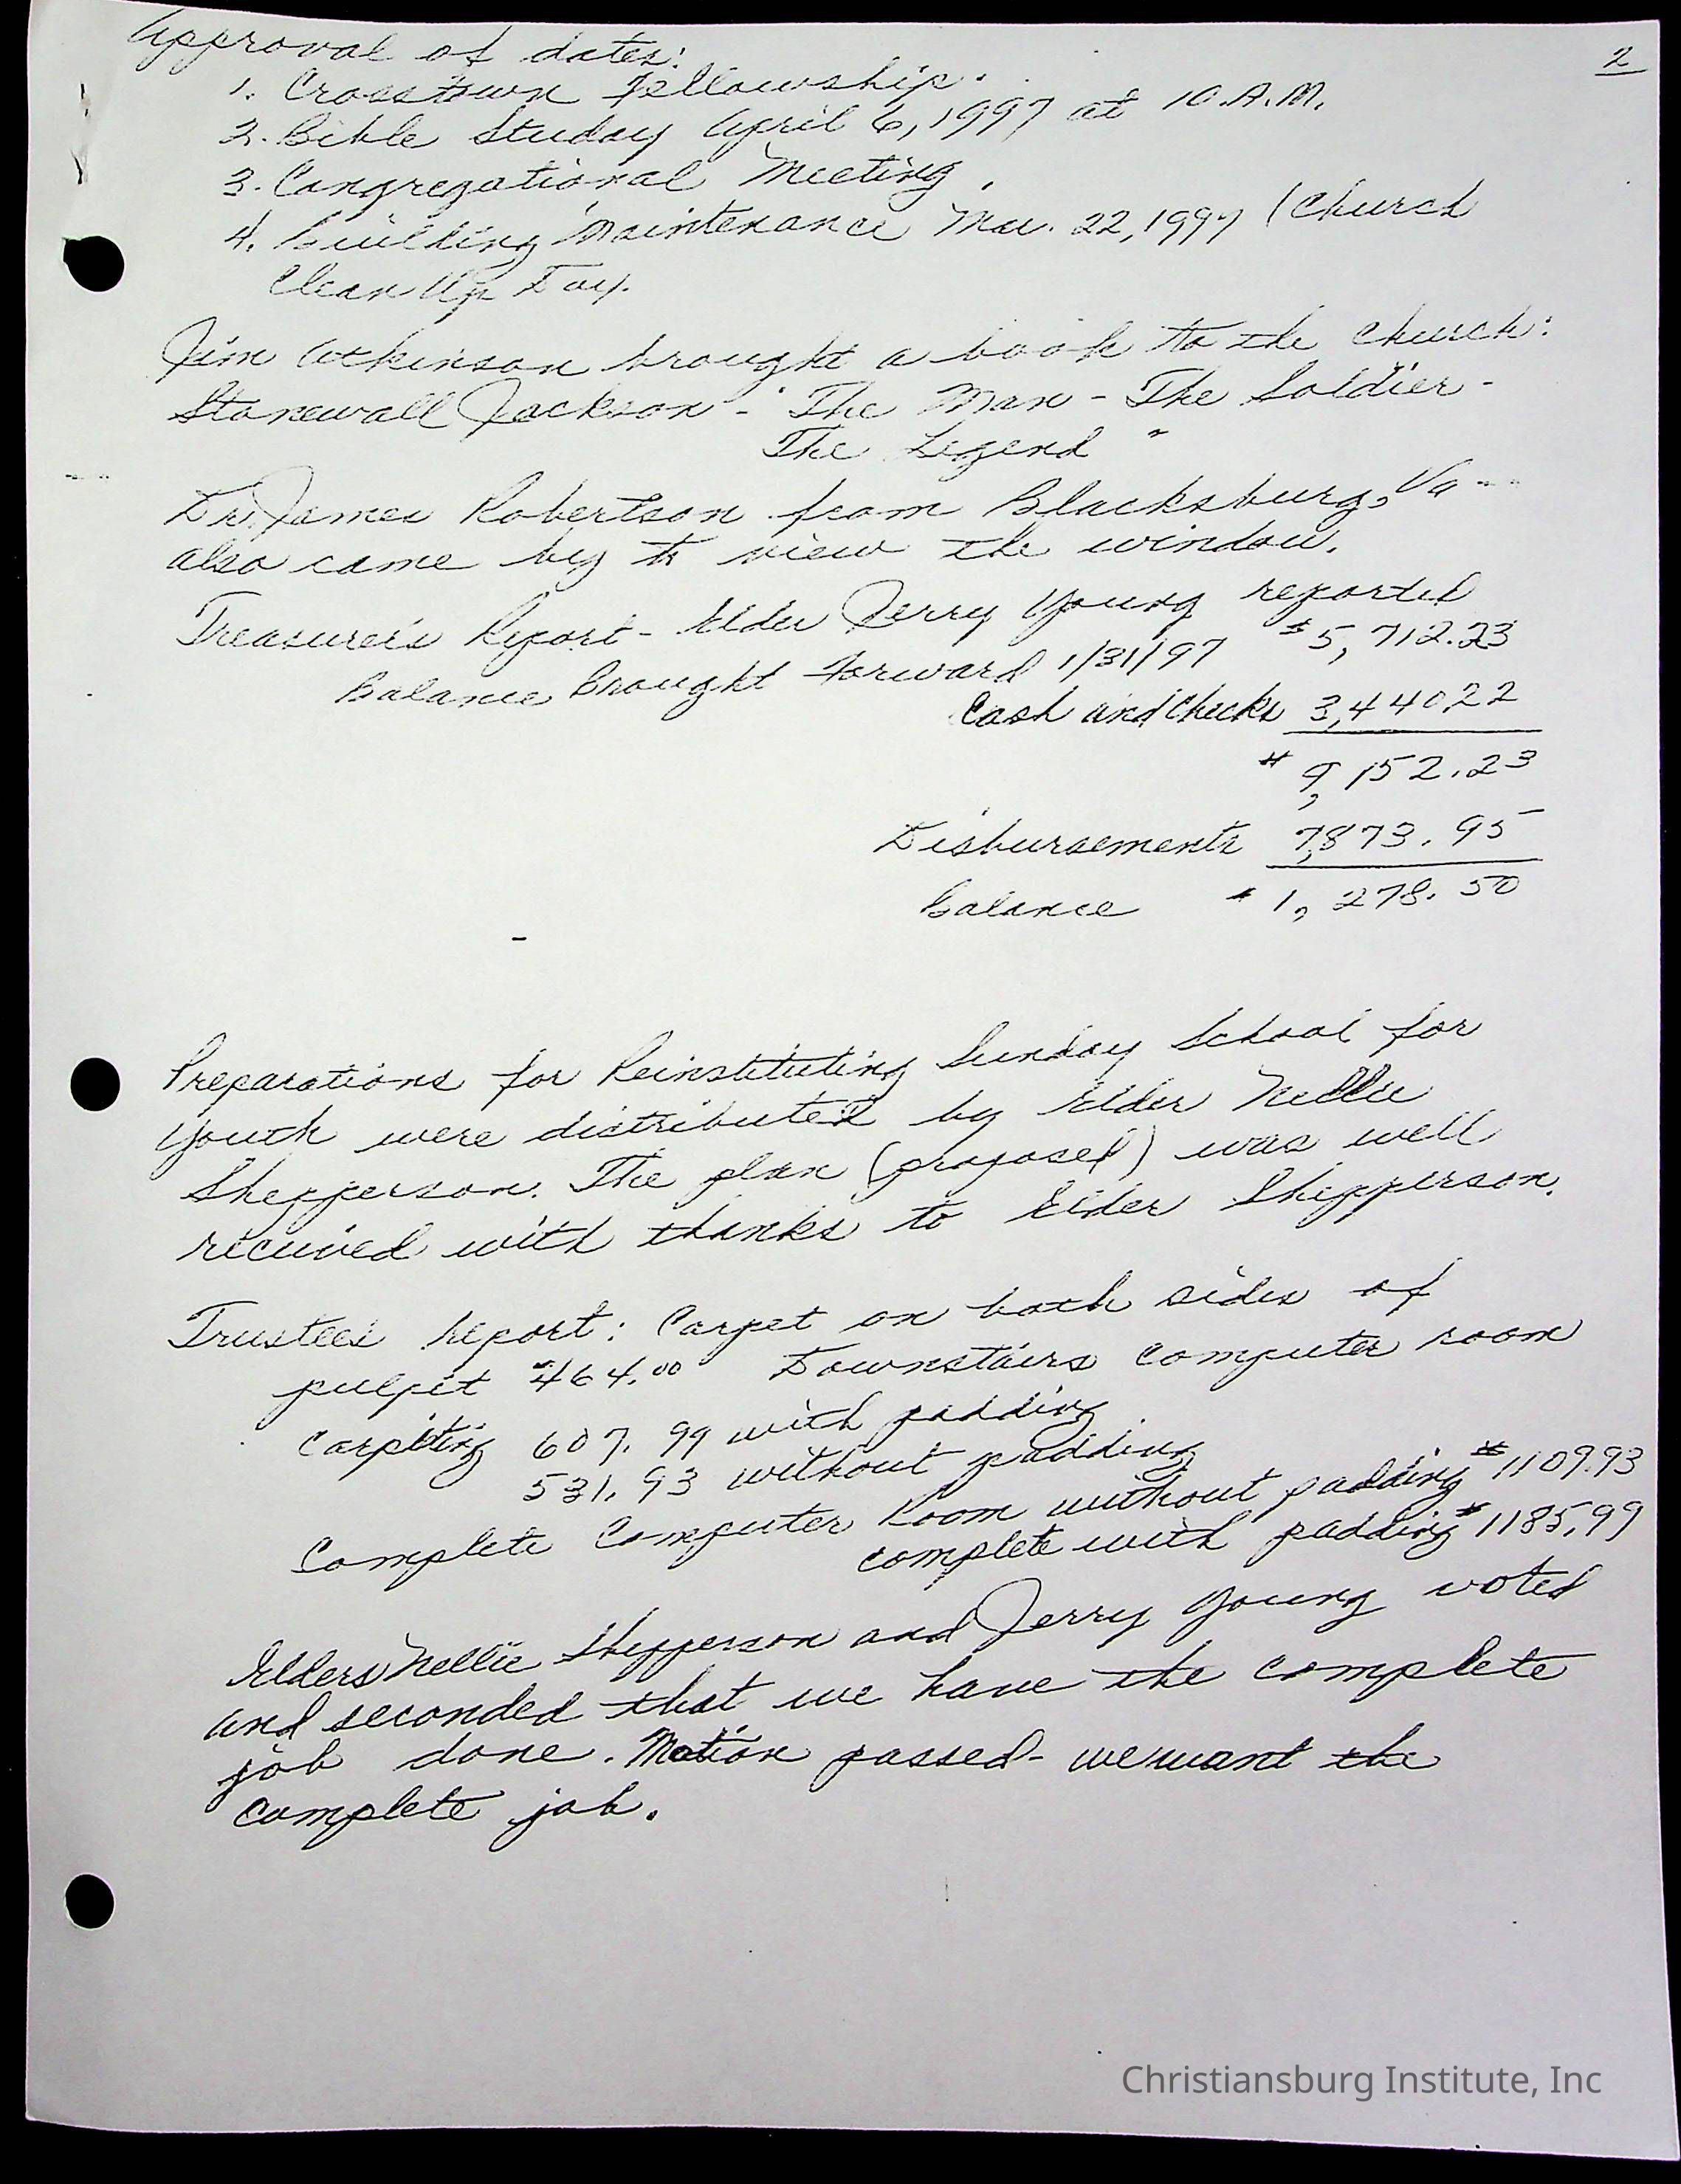 2
Approval of dates:
1. Crosstown Fellowship.
2. Bible Studay April 6, 1997 at 10 A.M.
3. Congregational Meeting.
4. Building Maintenance Mar. 22, 1997 (Church
Clean Up Day.
Jim Atkinson brought a book to the church:
Stonewall Jackson - "The Man - The Soldier -
The Legend"
Dr. James Robertson from Blacksburg, Va --
also came by to view the window.
Treasurer's Report - Elder Jerry Young reported
Balance Brought Forward 1/31/97 $5,712.23
Cash and Checks 3,440.22
$ 9,152.23
Disbursements 7,873.95
Balance $1,278.50
Preparations for Reinstituting Sunday School for
Youth were distributed by Elder Nellie
Shepperson. The plan (proposed) was well
received with thanks to Elder Shepperson.
Trustees report: Carpet on both sides of
pulpit $464.00 Downstairs computer room
Carpeting 607.99 with padding
531.93 without padding
Complete Computer Room without padding $1109.93
complete with padding $1185.99
Elders Nellie Shepperson and Jerry Young voted
and seconded that we have the complete
job done. Motion passed - we want the
complete job.
Christiansburg Institute, Inc